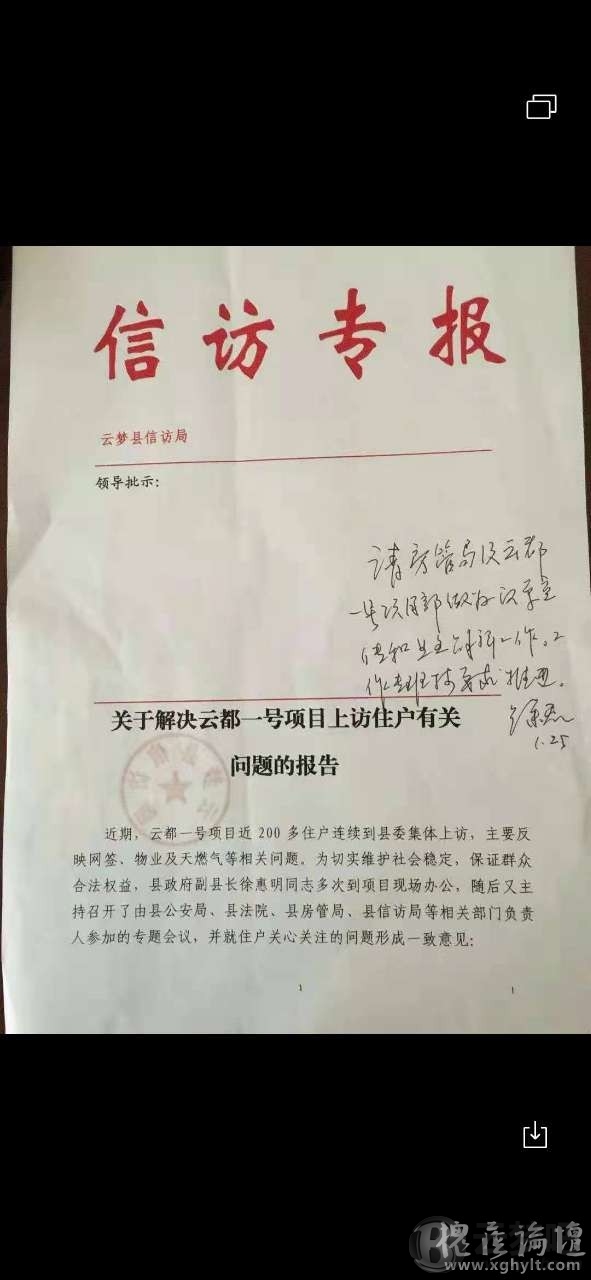 信访专报
云梦县信访局
领导批示：
请房管局及云都
一号项目部做好
作专班抓落实推进。
1.25
关于解决云都一号项目上访住户有关
问题的报告
近期，云都一号项目近 200 多住户连续到县委集体上访，主要反
映网签、物业及天燃气等相关问题。为切实维护社会稳定，保证群众
合法权益，县政府副县长徐惠明同志多次到项目现场办公，随后又主
持召开了由县公安局、县法院、县房管局、县信访局等相关部门负责
人参加的专题会议，并就住户关心关注的问题形成一致意见：
1
1
槐荫论坛
www.xghylt.com